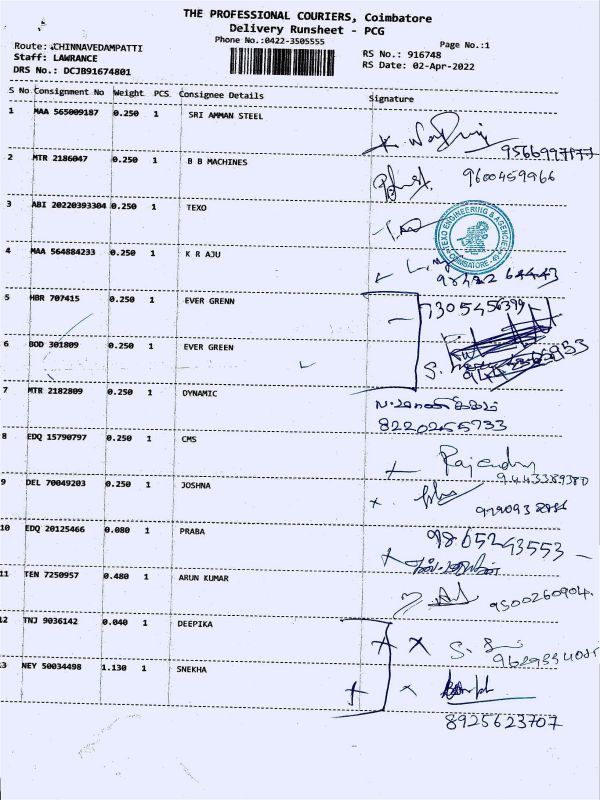 THE PROFESSIONAL COURIERS, Coimbatore
Delivery Runsheet - PCG
Phone No.:0422-3505555
Page No.:1
Route: CHINNAVEDAMPATTI
Staff: LAWRANCE
DRS No.: DCJB91674801
RS No.: 916748
RS Date: 02-Apr-2022
S No Consignment No Weight PCS Consignee Details Signature
1 MAA 565009187 0.250 1 SRI AMMAN STEEL
9566997177
2 MTR 2186047 0.250 1 B B MACHINES
9600459966
3 ABI 20220393304 0.250 1 TEXO
TEXO ENGINEERING & AGENCIES COIMBATORE
4 MAA 564884233 0.250 1 K R AJU
5 HBR 707415 0.250 1 EVER GRENN
7305456399
6 BOD 301809 0.250 1 EVER GREEN
7 MTR 2182809 0.250 1 DYNAMIC
8220255733
8 EDQ 15790797 0.250 1 CMS
Rajendra
9443389380
9 DEL 70049203 0.250 1 JOSHNA
10 EDQ 20125466 0.080 1 PRABA
9865243553
11 TEN 7250957 0.480 1 ARUN KUMAR
9500260904
12 TNJ 9036142 0.040 1 DEEPIKA
13 NEY 50034498 1.130 1 SNEKHA
8925623707